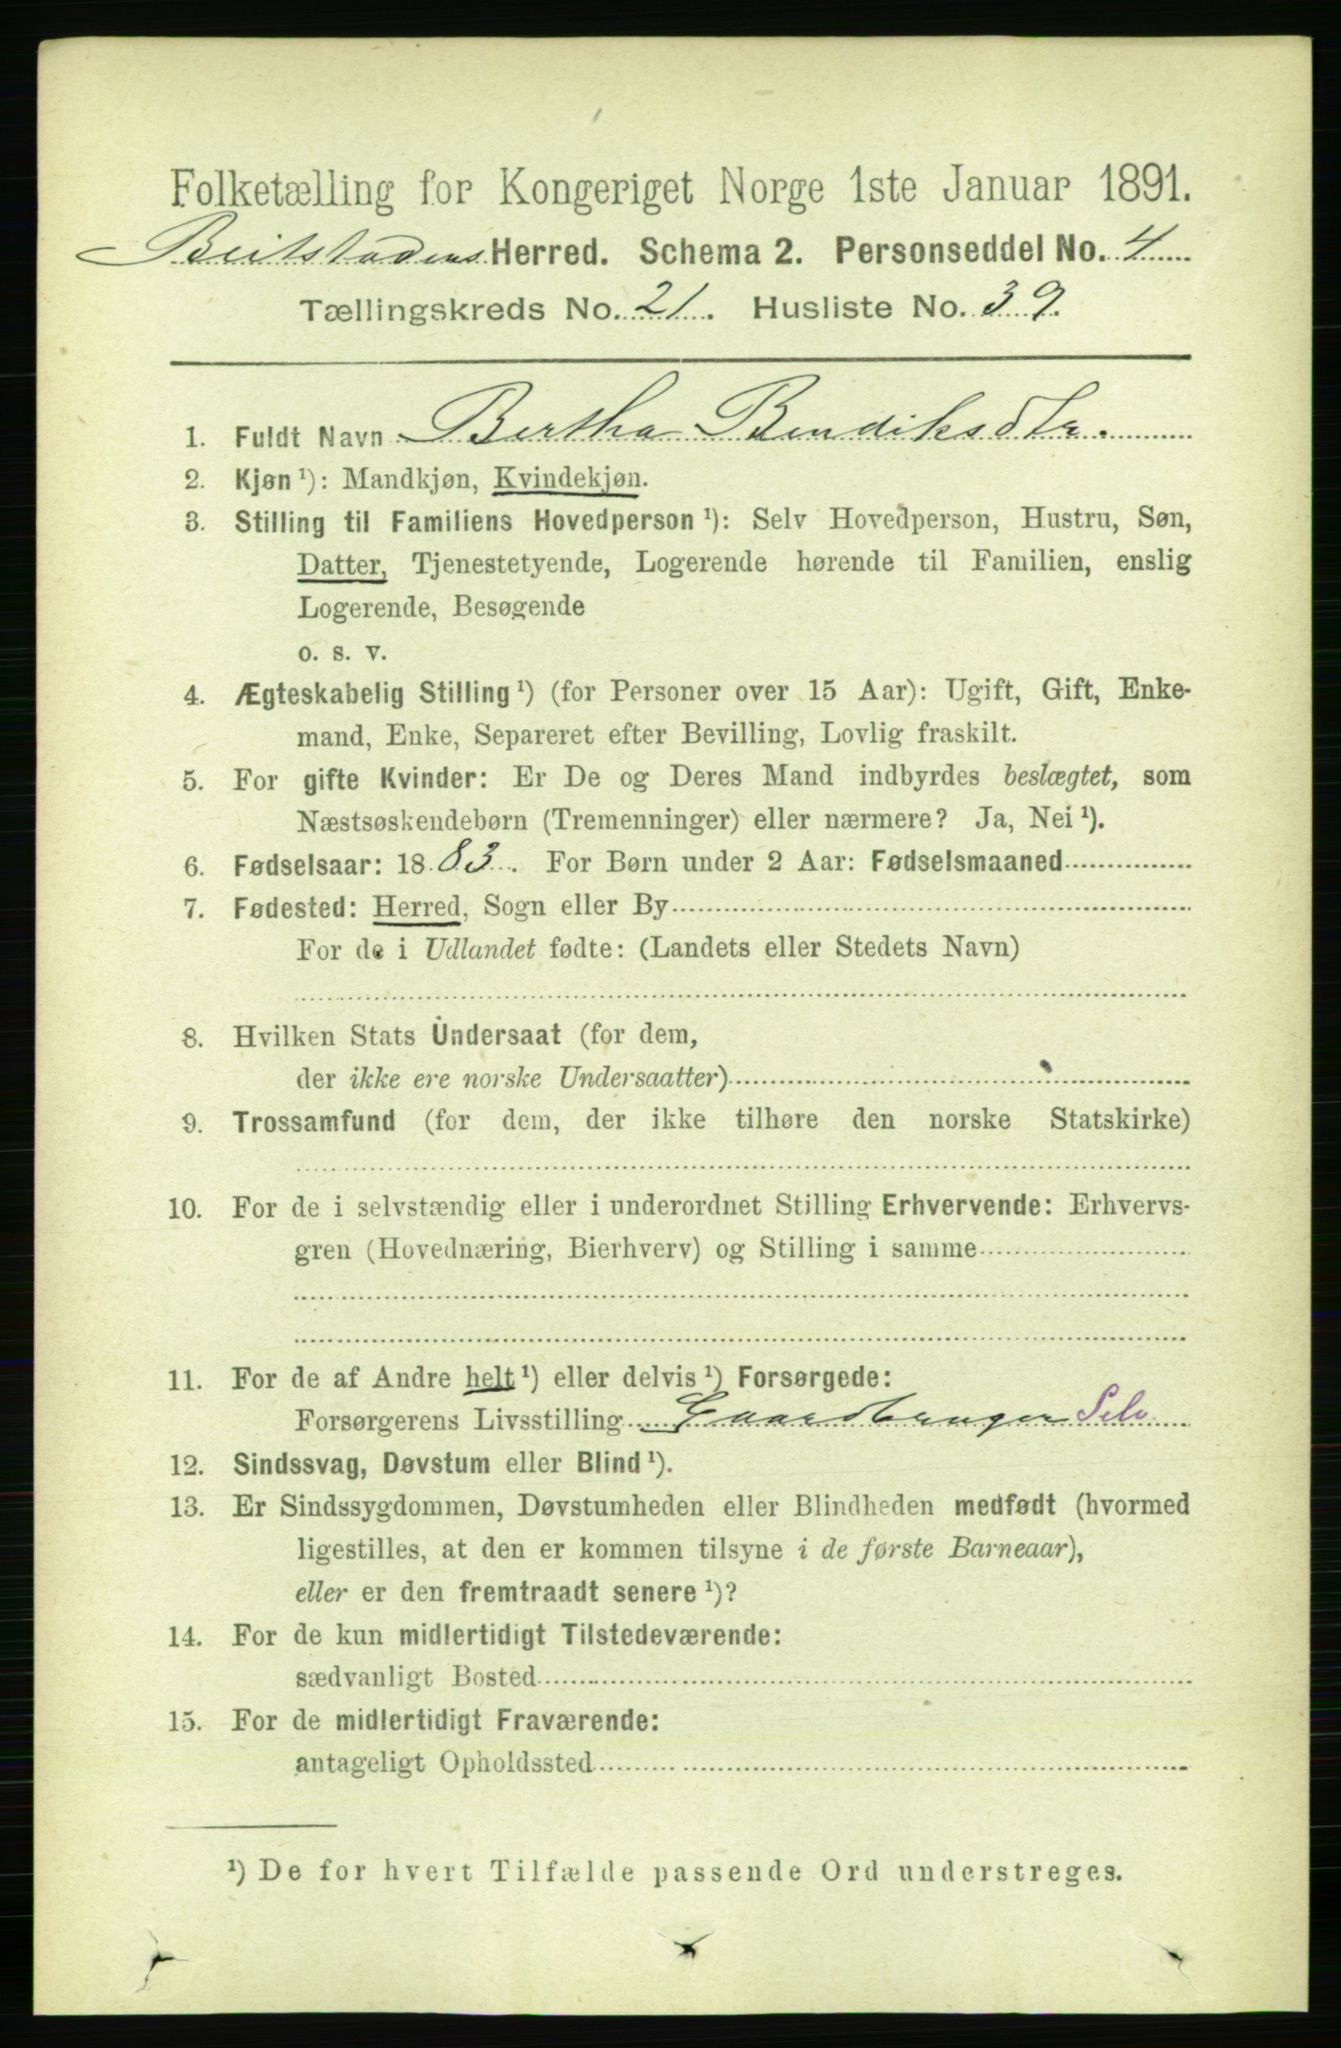 Folketælling for Kongeriget Norge 1ste Januar 1891.
Beitstadens Herred. Schema 2. Personseddel No. 4
Tællingskreds No. 21. Husliste No. 39.
1. Fuldt Navn Bertha Bendiksdtr.
2. Kjøn ¹): Mandkjøn, Kvindekjøn.
3. Stilling til Familiens Hovedperson ¹): Selv Hovedperson, Hustru, Søn,
Datter, Tjenestetyende, Logerende hørende til Familien, enslig
Logerende, Besøgende
o. s. v.
4. Ægteskabelig Stilling ¹) (for Personer over 15 Aar): Ugift, Gift, Enke-
mand, Enke, Separeret efter Bevilling, Lovlig fraskilt.
5. For gifte Kvinder: Er De og Deres Mand indbyrdes beslægtet, som
Næstsøskendebørn (Tremenninger) eller nærmere? Ja, Nei ¹).
6. Fødselsaar: 1883. For Børn under 2 Aar: Fødselsmaaned
7. Fødested: Herred, Sogn eller By
For de i Udlandet fødte: (Landets eller Stedets Navn)
8. Hvilken Stats Undersaat (for dem,
der ikke ere norske Undersaatter)
9. Trossamfund (for dem, der ikke tilhøre den norske Statskirke)
10. For de i selvstændig eller i underordnet Stilling Erhvervende: Erhvervs-
gren (Hovednæring, Bierhverv) og Stilling i samme
11. For de af Andre helt ¹) eller delvis ¹) Forsørgede:
Forsørgerens Livsstilling Gaardbruger Selv
12. Sindssvag, Døvstum eller Blind ¹).
13. Er Sindssygdommen, Døvstumheden eller Blindheden medfødt (hvormed
ligestilles, at den er kommen tilsyne i de første Barneaar),
eller er den fremtraadt senere ¹)?
14. For de kun midlertidigt Tilstedeværende:
sædvanligt Bosted
15. For de midlertidigt Fraværende:
antageligt Opholdssted
¹) De for hvert Tilfælde passende Ord understreges.